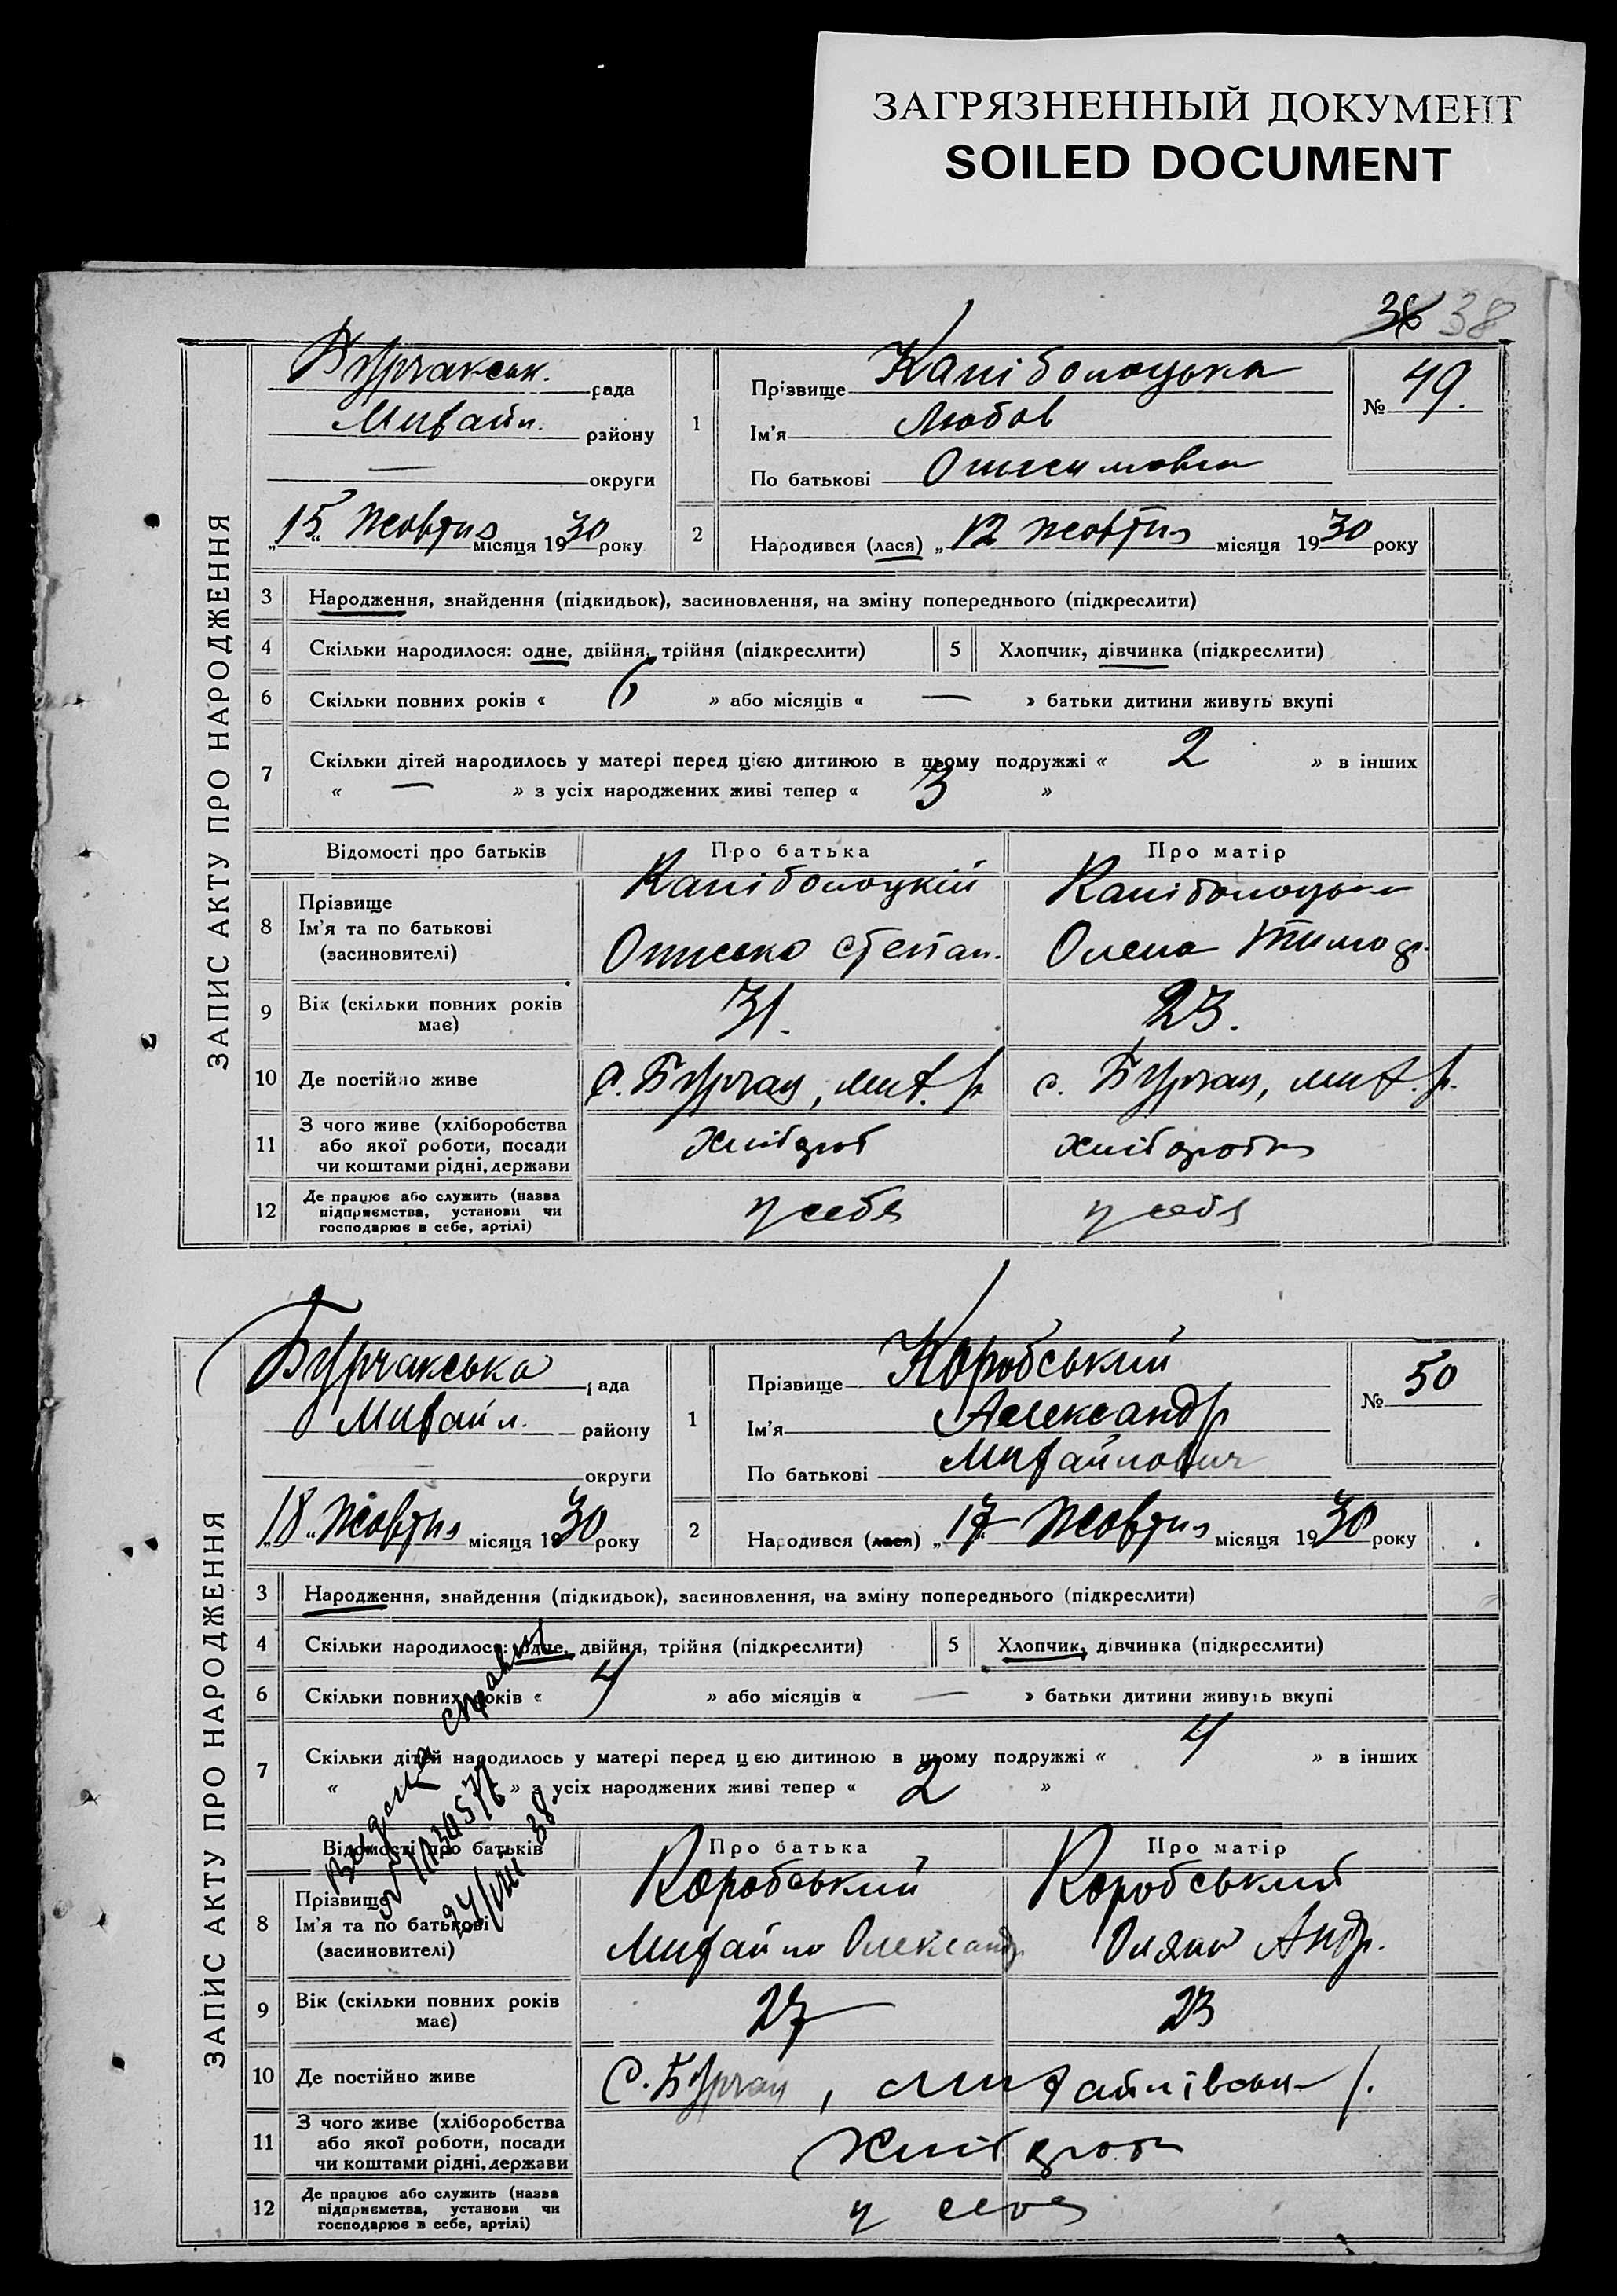 ЗАГРЯЗНЕННЫЙ ДОКУМЕНТ
SOILED DOCUMENT
36 38
ЗАПИС АКТУ ПРО НАРОДЖЕННЯ
Бурчакськ. рада
Михайл. району
— округи
„15“ Жовтня місяця 1930 року
1
Прізвище Капіболоцька
Ім'я Любов
По батькові Онисимовна
№ 49.
2 Народився (лася) „12 жовтня місяця 1930 року
3 Народження, знайдення (підкидьок), засиновлення, на зміну попереднього (підкреслити)
4 Скільки народилося: одне, двійня, трійня (підкреслити) 5 Хлопчик, дівчинка (підкреслити)
6 Скільки повних років « 6 » або місяців « — » батьки дитини живуть вкупі
7 Скільки дітей народилось у матері перед цією дитиною в цьому подружжі « 2 » в інших
« — » з усіх народжених живі тепер « 3 »
Відомості про батьків Про батька Про матір
8 Прізвище Ім'я та по батькові (засновителі)
Капіболоцкій Капіболоцька
Онисько Степан. Олена Тимоф.
9 Вік (скільки повних років має) 31. 23.
10 Де постійно живе с. Бурчак, мих. р с. Бурчак, мих. р.
11 З чого живе (хліборобства або якої роботи, посади чи коштами рідні, держави Хлібороб Хлібороби
12 Де працює або служить (назва підприємства, установи чи господарює в себе, артілі) у себя у себя
ЗАПИС АКТУ ПРО НАРОДЖЕННЯ
Бурчакська рада
Михайл. району
— округи
„18„ Жовтня місяця 1930 року
1
Прізвище Коробський
Ім'я Александр
По батькові Михайлович
№ 50
2 Народився (лася) „17 Жовтня місяця 1930 року
3 Народження, знайдення (підкидьок), засиновлення, на зміну попереднього (підкреслити)
4 Скільки народилося: одне, двійня, трійня (підкреслити) 5 Хлопчик, дівчинка (підкреслити)
6 Скільки повних років « 4 » або місяців « — » батьки дитини живуть вкупі
7 Скільки дітей народилось у матері перед цєю дитиною в цьому подружжі « 4 » в інших
« » з усіх народжених живі тепер « 2 »
24/VIII 38
Відомості про батьків Про батька Про матір
8 Прізвище Ім'я та по батькові (засиновителі)
Коробський Коробський
Михайло Олександр Оляна Андр.
9 Вік (скільки повних років має) 27 23
10 Де постійно живе С. Бурчак, Михайлівськ р.
11 З чого живе (хліборобства або якої роботи, посади чи коштами рідні, держави Хлібороби
12 Де працює або служить (назва підприємства, установи чи господарює в себе, артілі) у себя